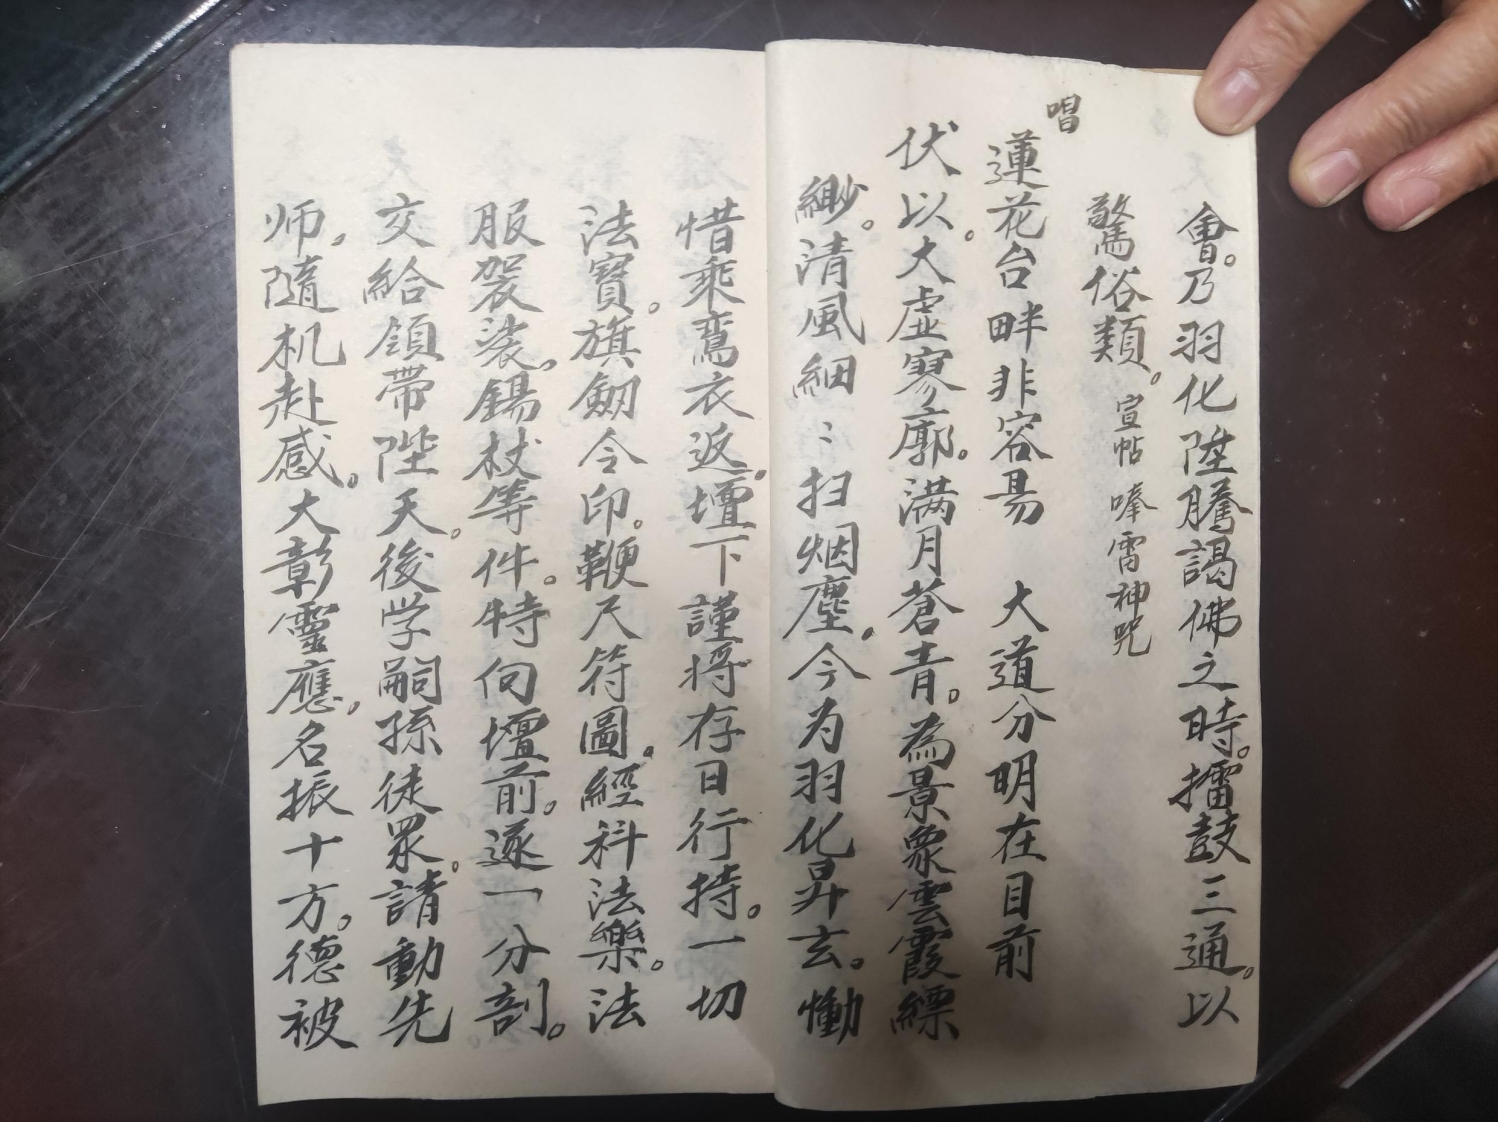 會。乃羽化陞騰謁佛之時。擂鼓三通。以
驚俗類。宣帖 唪雷神咒
唱
蓮花台畔非容易 大道分明在目前
伏以。大虛寥廓。满月蒼青。為景象雲霞縹
緲。清風細〻扫烟塵。今为羽化昇玄。慟
惜乘鸞衣返。壇下謹将存日行持。一切
法寶。旗劒令印。鞭尺符圖。經科法樂。法
服袈裟。錫杖等件。特向壇前。逐一分剖。
交給領帶陛天。後学嗣孫徒眾。請動先
师，隨机赴感。大彰靈應。名振十方。德被